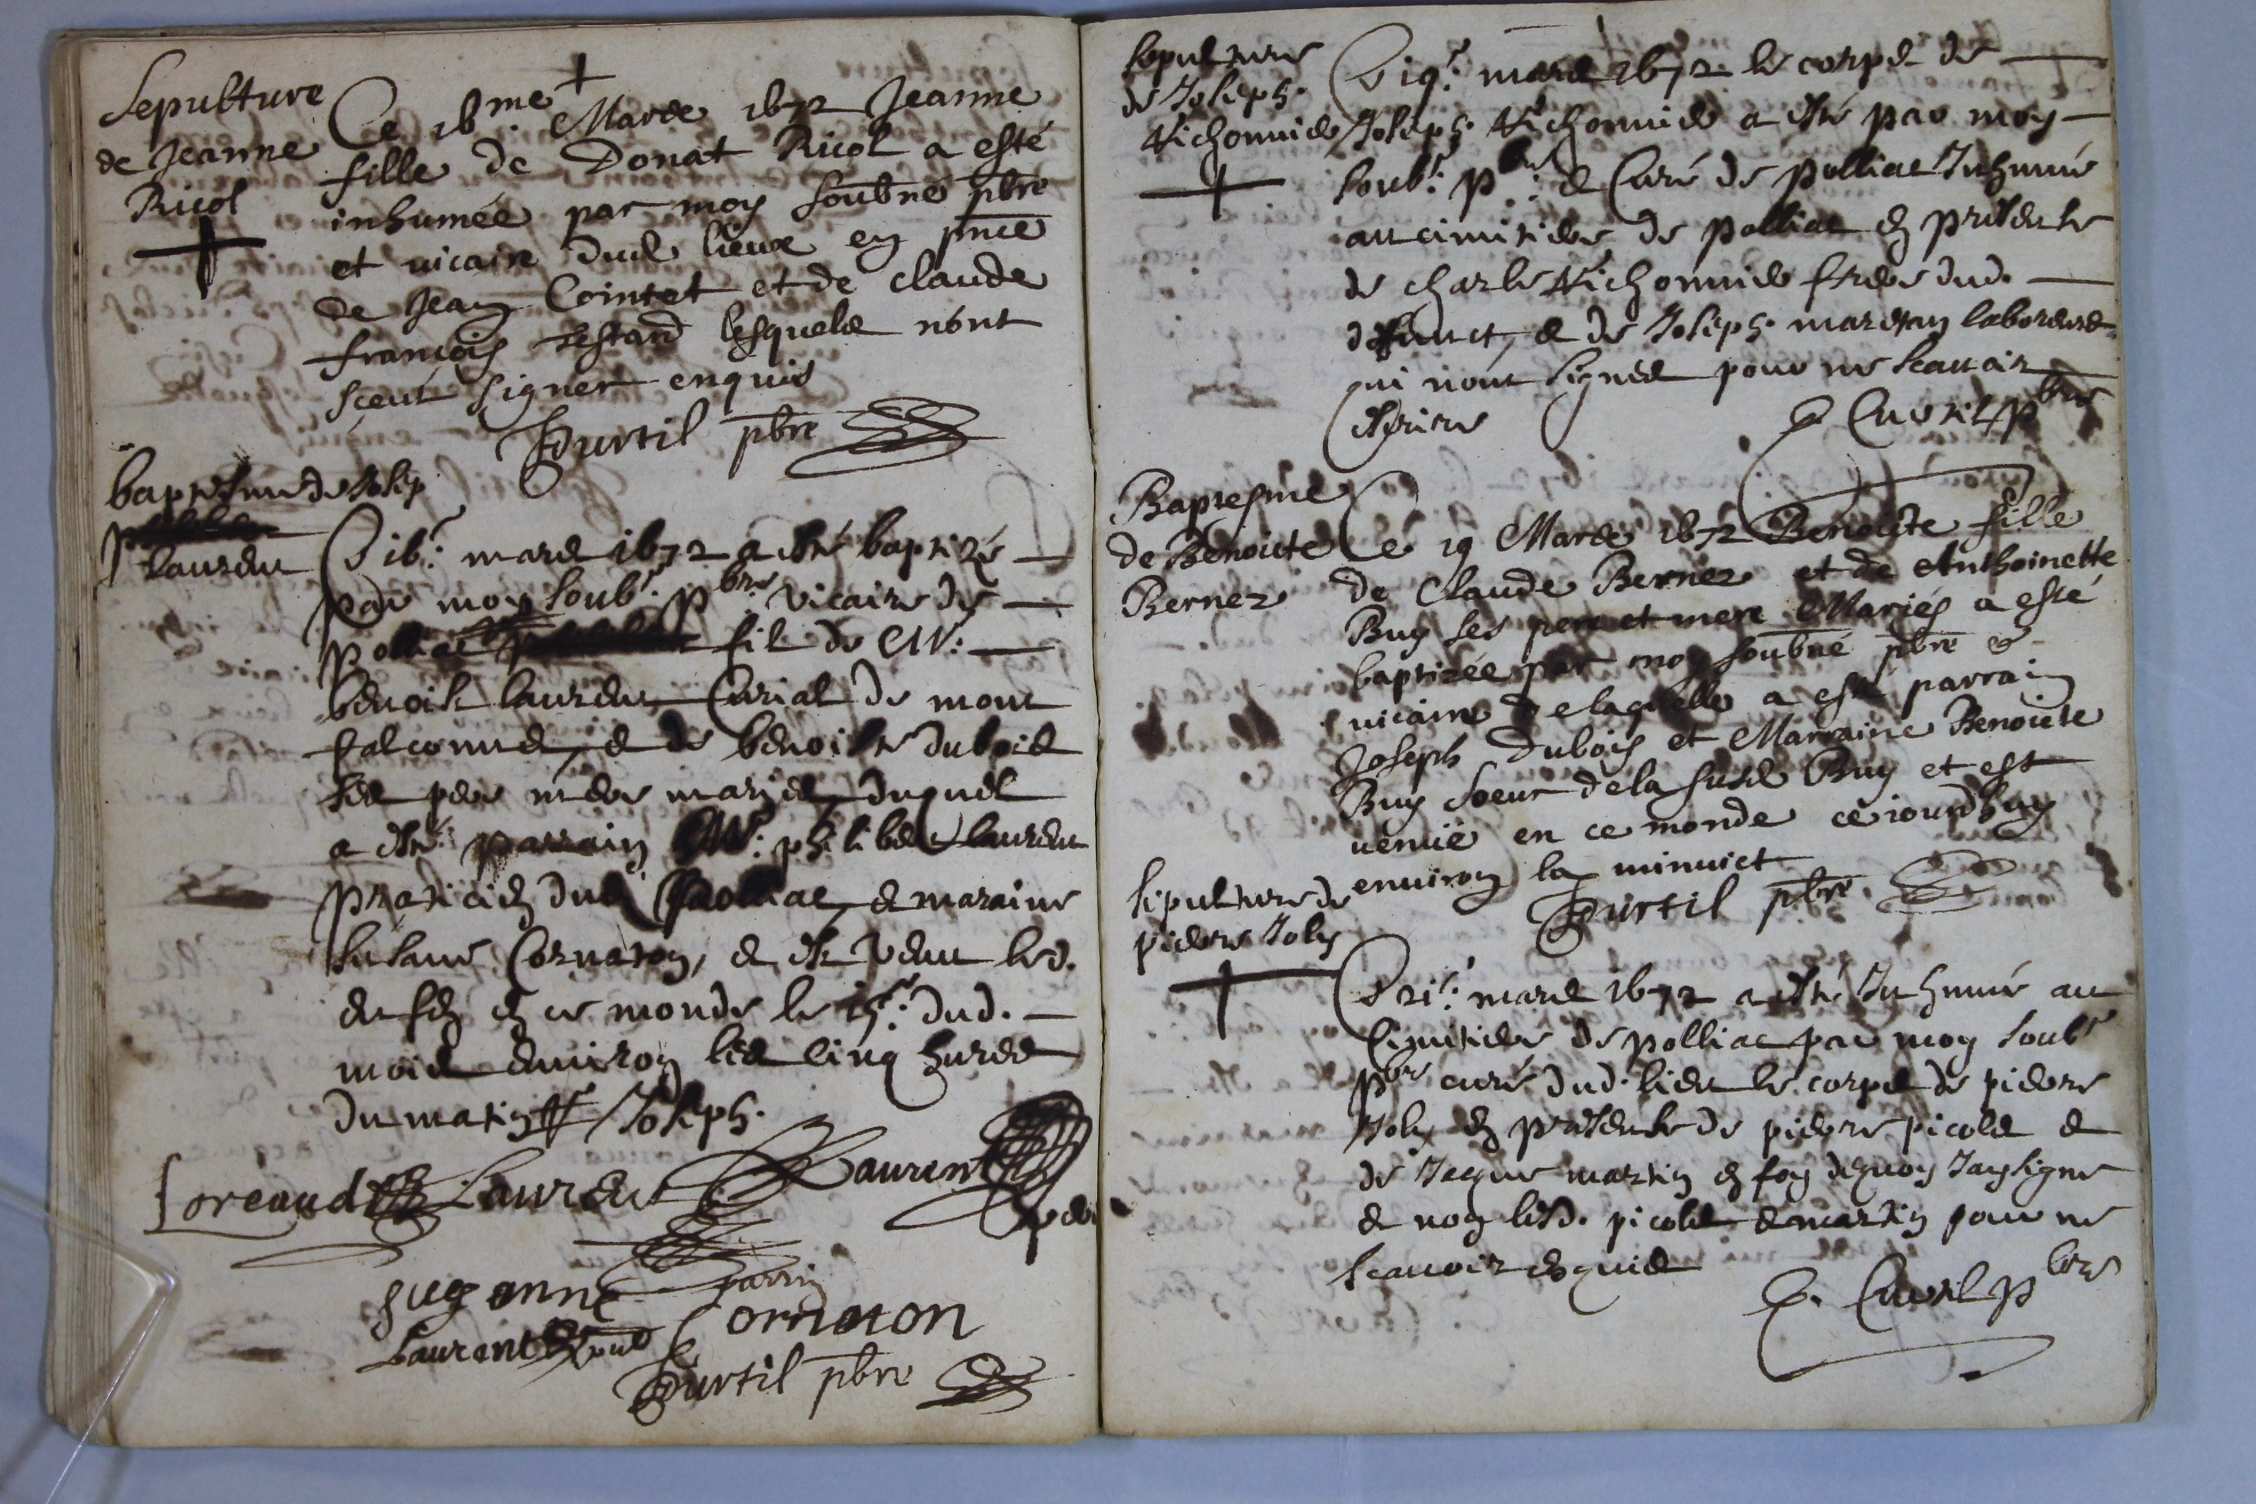 Sepulture
de Jeanne
Ricol
Ce 16me Mars 1672 Jeanne
fille de Donat Ricol a esté
inhumée par moy soubné pbre
et vicaire dud lieux en pnce
de Jean Cointet et de Claude
françois testard lesquels nont
sceut signer enquis
Curtil pbre
baptesme de Josep
laurent
Ce 16e mars 1672 a esté baptizé
par moy soubs. pbre vicaire de
polliat fil de Mr:
benoist laurent Curial de mont
falconnet, et de benoiste dubois
ses pere mere mariés, duquel
a esté parrain Mr: philibert laurent
praticien dud polliat, et maraine
susane Cornaton, et est venu led.
enfen en ce monde le 15e: dud.
mois environ les cinq hures
du matin Joseph.
Loreaud Laurent Laurent
parrin
suzanne Cornaton
Laurent
Curtil pbre
sepulture
de Joseph.
Vichonnide
Ce 19e: mars 1672 le corps de
Joseph. Vichonnide a esté par moy
soub.: pbre: et Curé de polliat Inhumé
au cimitiere de polliat en presente
de charle Vichonnide frere dud.
deffunct, et de Joseph. laboreurs
qui nont signes pour ne scauoir
escrire
Curtil pbre
Baptesme
de Benoicte
Bernez
Ce 19 Mars 1672 Benoicte fille
de Claude Bernez et de Anthoinette
Buy ses pere et mere Mariés a esté
baptizée par moy soubné pbre et
vicaire de laquelle a esté parrain
Joseph Dubois et Marraine Benoicte
Buy soeur de la susd Buy et est
venue en ce monde ce iourdhuy
environ la minuict
Curtil pbre
sepulture de
pierre Joly
Ce 21e: mars 1672 a esté Inhumé au
Cimitiere de polliat par moy soubs
pbre curé dud. lieu le corps de pierre
Joly en presente de pierre picolet et
de Jaque martin en foy dequoy Jay signe
et non lesd. picolet et martin pour ne
scauoir enquis
Curtil pbre